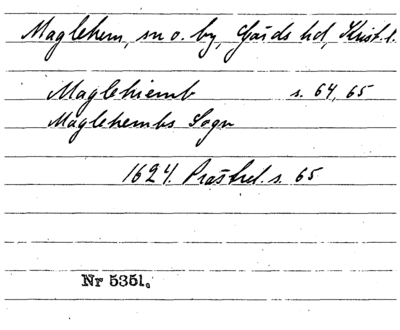 Maglehem, sn o. by, Gärds hd, Krist. l.
Maglehiemb s. 64, 65
Maglehembs Sogn
1624. Prästrel. s. 65
Nr 5351.